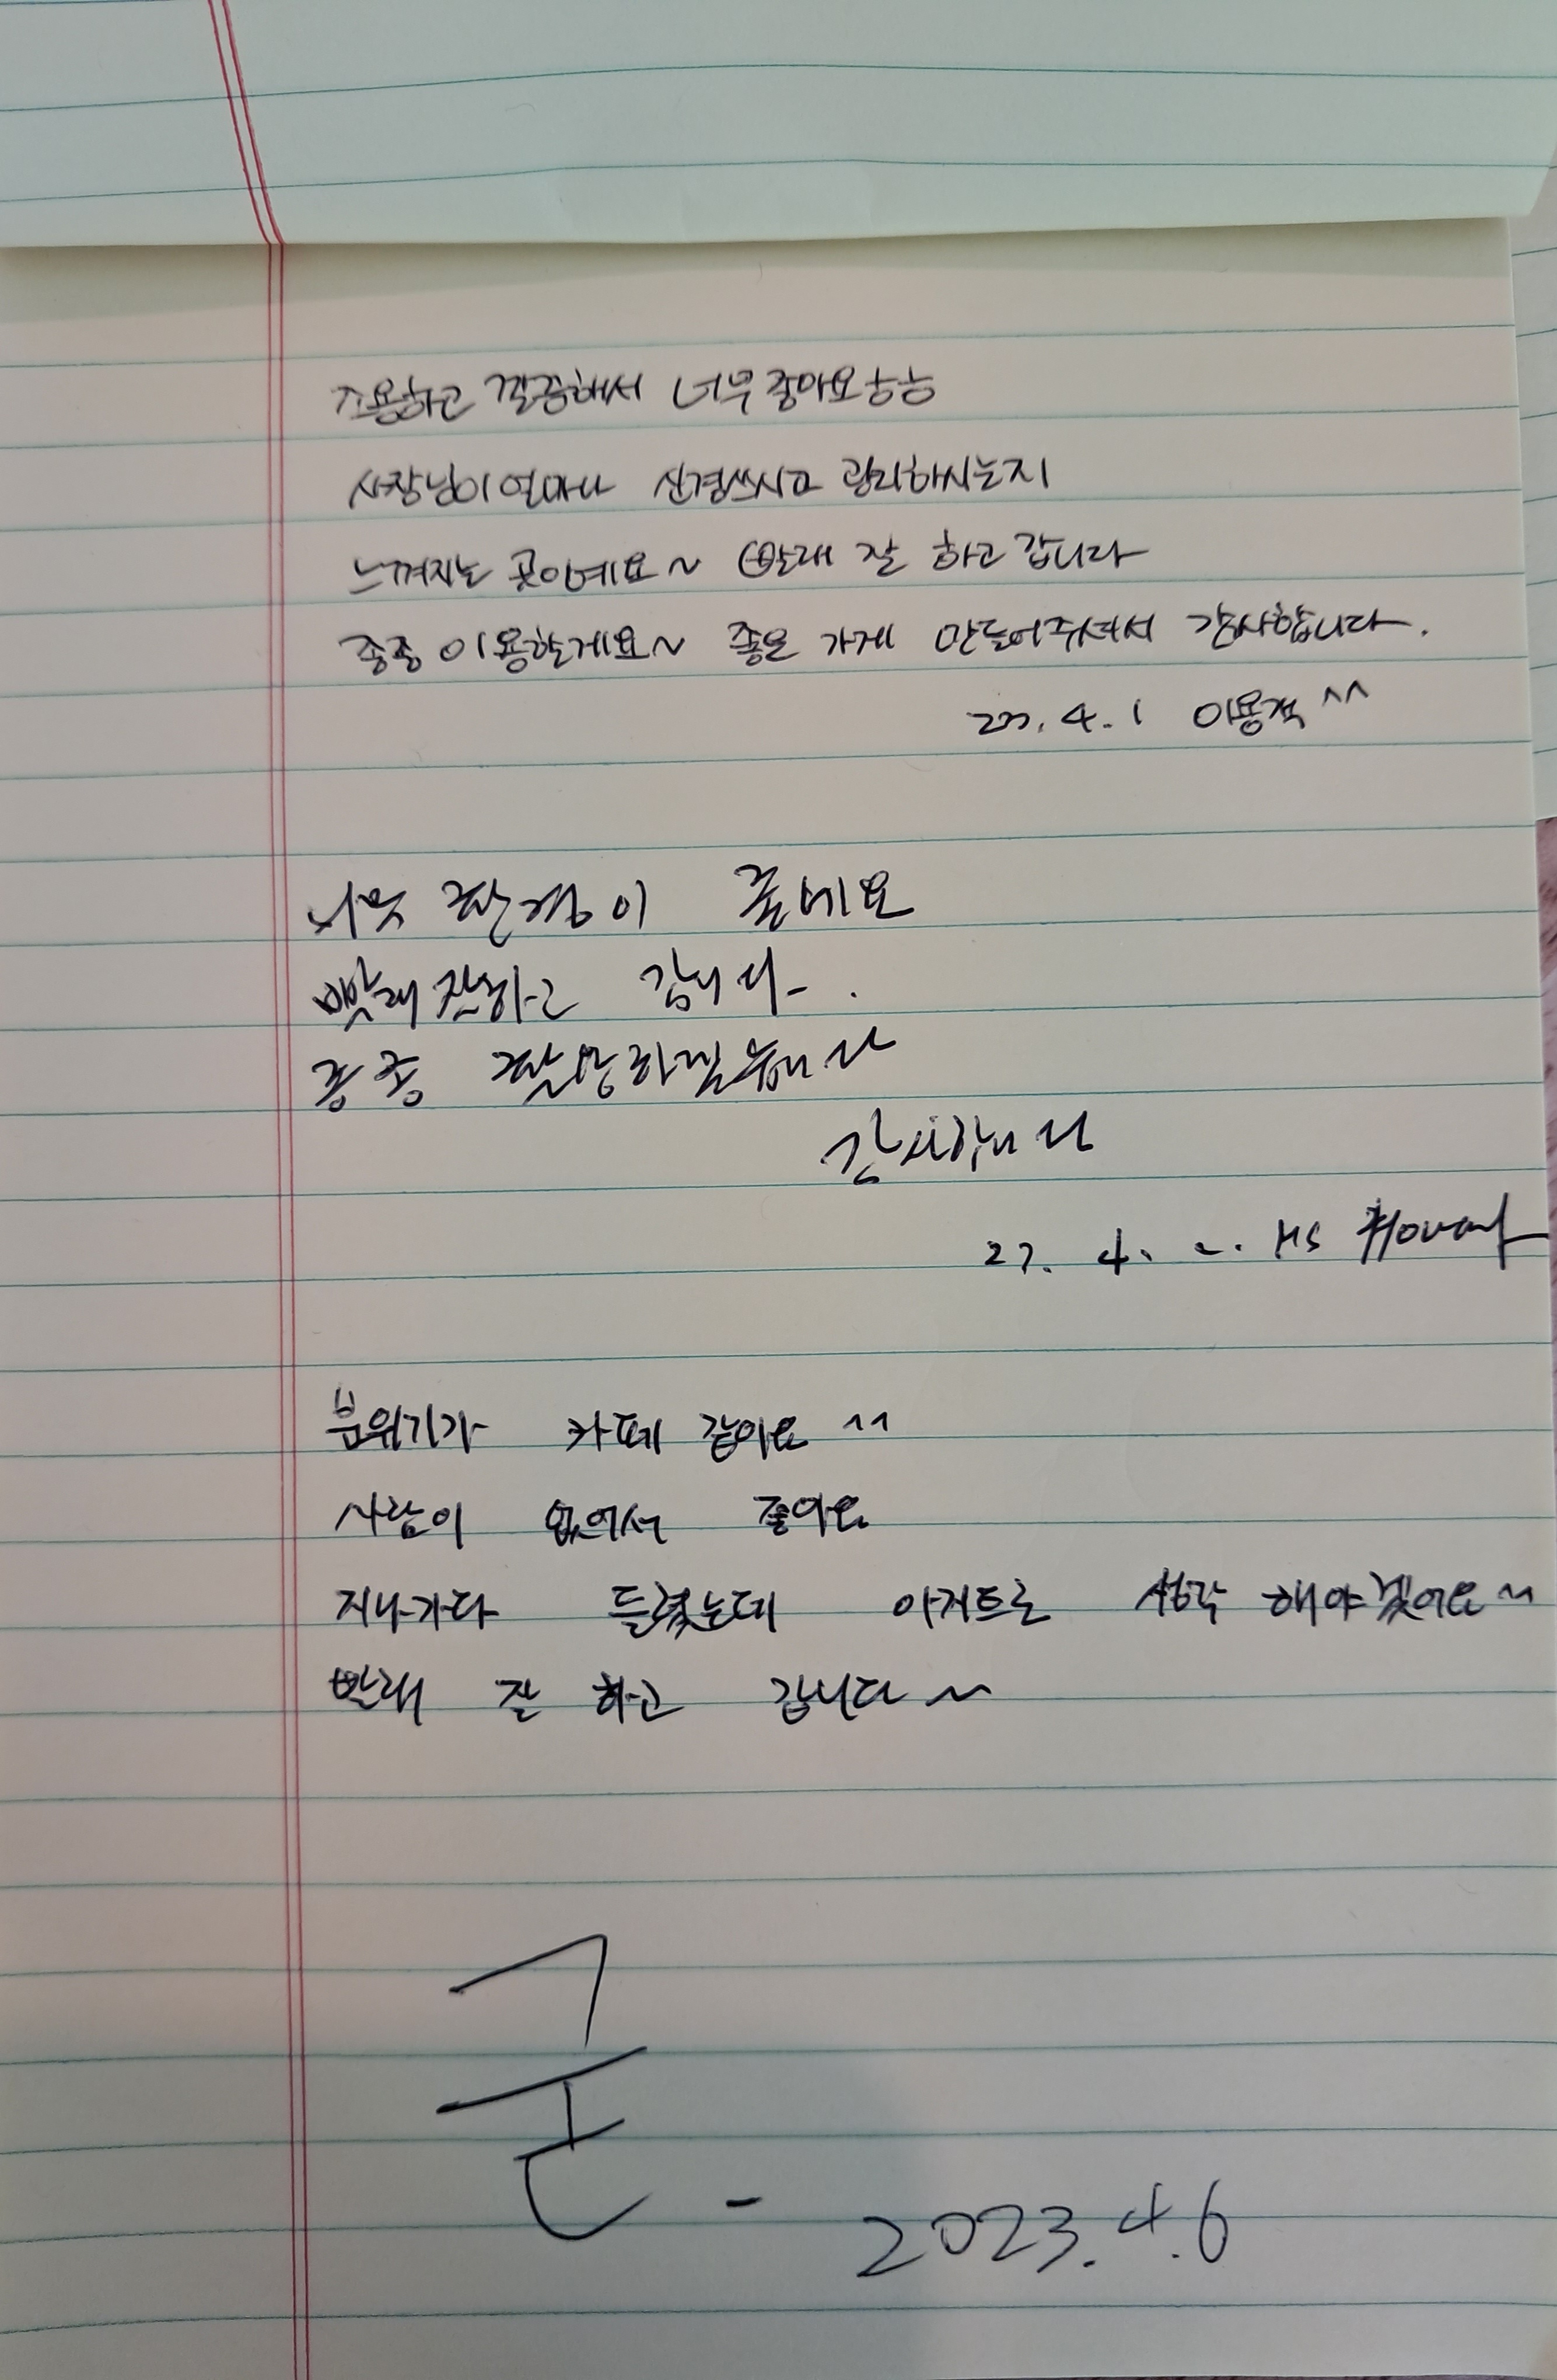 조용하고 깔끔해서 너무 좋아요ㅎㅎ
사장님이 얼마나 신경쓰시고 관리하시는지
느껴지는 곳이예요~ 빨래 잘 하고 갑니다
종종 이용할게요~ 좋은 가게 만들어주셔서 감사합니다.
23. 4. 1 이용객 ^^
너무 환경이 좋네요
빨래 잘하고 갑니다.
종종
감사합니다
23. 4. 2. HS
분위기가 카페 같아요 ^^
사람이 없어서 좋아요
지나가다 들렸는데 아지트로 생각 해야겠어요~
빨래 잘 하고 갑니다~
굳 - 2023.4.6